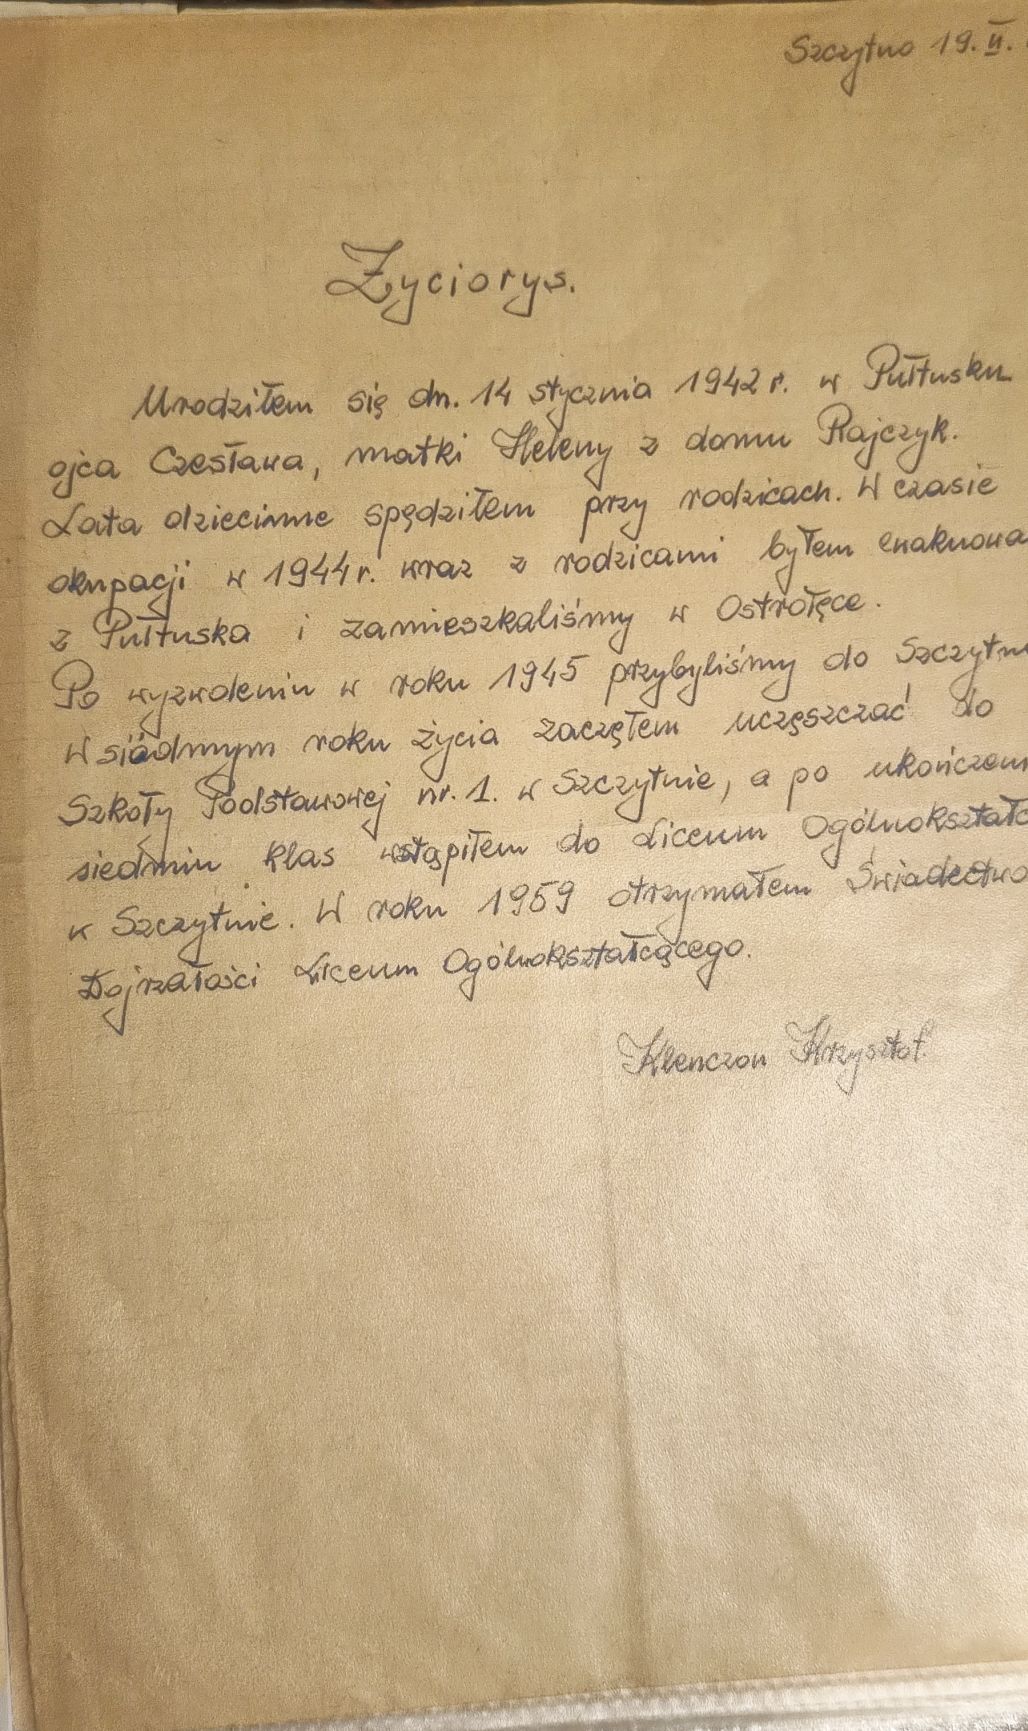 Szczytno 19.II.
Życiorys.
Urodziłem się dn. 14 stycznia 1942 r. w Pułtusku
ojca Czesława, matki Heleny z domu Rajczyk.
Lata dziecinne spędziłem przy rodzicach. W czasie
okupacji w 1944 r. wraz z rodzicami byłem ewakuowa
z Pułtuska i zamieszkaliśmy w Ostrołęce.
Po wyzwoleniu w roku 1945 przybyliśmy do Szczytn
W siódmym roku życia zaczęłem uczęszczać do
Szkoły Podstawowej nr. 1. w Szczytnie, a po ukończeni
siedmiu klas wstąpiłem do Liceum Ogólnokształc
w Szczytnie. W roku 1959 otrzymałem Świadectwo
Dojrzałości Liceum Ogólnokształcącego.
Klenczon Krzysztof.